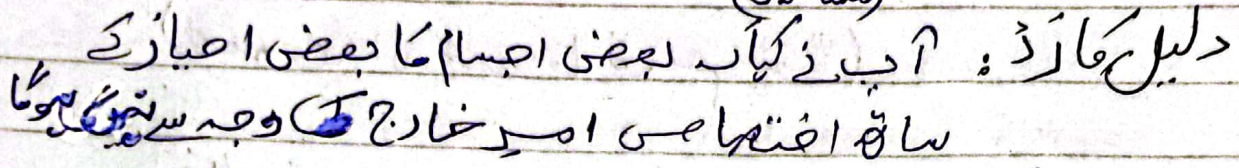 دلیل کا رَدّ : آپ نے کہا کہ بعض اجسام کا بعض احیاز کے
ساتھ اختصاص امرِ خارج کی وجہ سے نہیں ہوگا